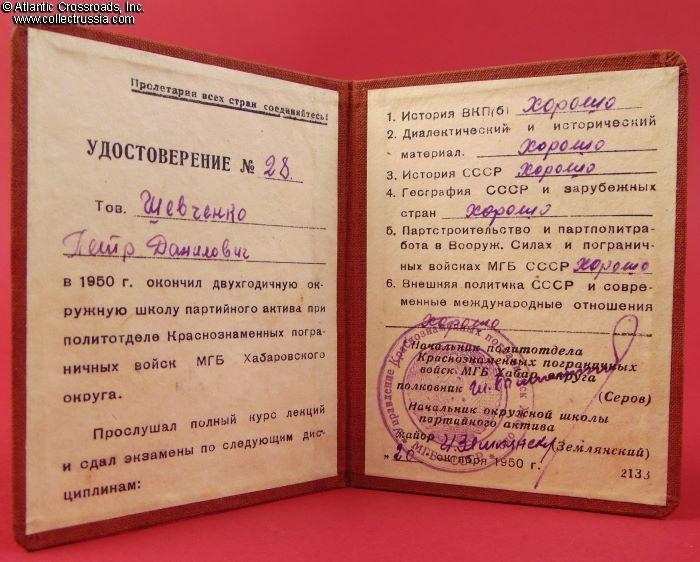 © Atlantic Crossroads, Inc.
www.collectrussia.com
Пролетарии всех стран соединяйтесь!
УДОСТОВЕРЕНИЕ № 28.
Тов. Шевченко
Петр Данилович
в 1950 г. окончил двухгодичную ок-
ружную школу партийного актива при
политотделе Краснознаменных погра-
ничных войск МГБ Хабаровского
округа.
Прослушал полный курс лекций
и сдал экзамены по следующим дис-
циплинам:
1. История ВКП(б) хорошо
2. Диалектический и исторический
материал. хорошо
3. История СССР хорошо
4. География СССР и зарубежных
стран хорошо
5. Партстроительство и партполитра-
бота в Вооруж. Силах и погранич-
ных войсках МГБ СССР хорошо
6. Внешняя политика СССР и совре-
менные международные отношения
хорошо
Начальник политотдела
Краснознаменных пограничных
войск МГБ Хабар. округа
полковник
(Серов)
Начальник окружной школы
партийного актива
майор (Землянский)
„20 октября 1950 г.
2133
Управление Краснознаменных
МГБ СССР